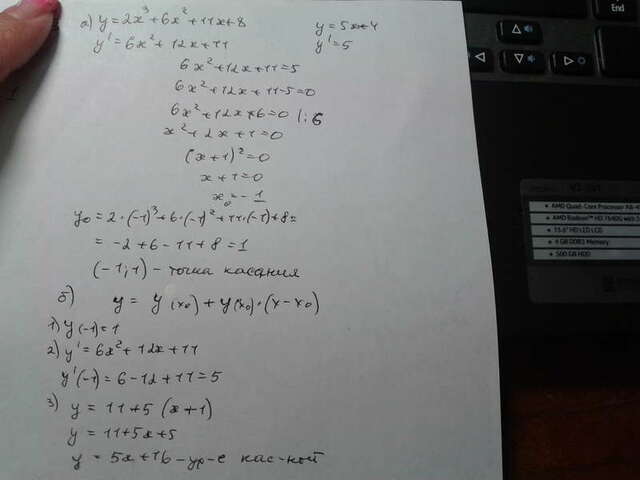 а) y=2x³+6x²+11x+8    y=5x+4
y'=6x²+12x+11    y'=5
6x²+12x+11=5
6x²+12x+11-5=0
6x²+12x+6=0 |:6
x²+2x+1=0
(x+1)²=0
x+1=0
x₀=-1
y₀=2·(-1)³+6·(-1)²+11·(-1)+8=
=-2+6-11+8=1
(-1;1) - точка касания
б) y=y(x₀)+y(x₀)·(x-x₀)
1) y(-1)=1
2) y'=6x²+12x+11
y'(-1)=6-12+11=5
3) y=11+5(x+1)
y=11+5x+5
y=5x+16-ур-е кас-ной
End
AMD Quad-Core Processor A8-4
AMD Radeon™ HD 7640G
15.6" HD LED LCD
4 GB DDR3 Memory
500 GB HDD